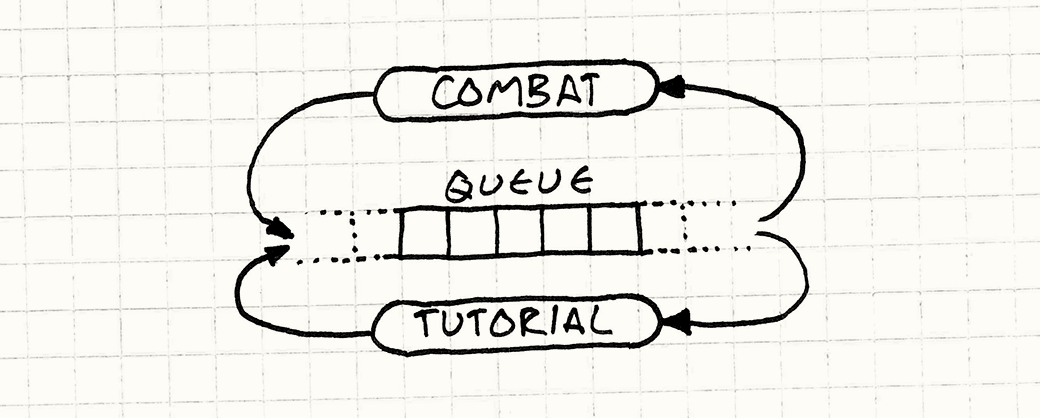 COMBAT
QUEUE
TUTORIAL